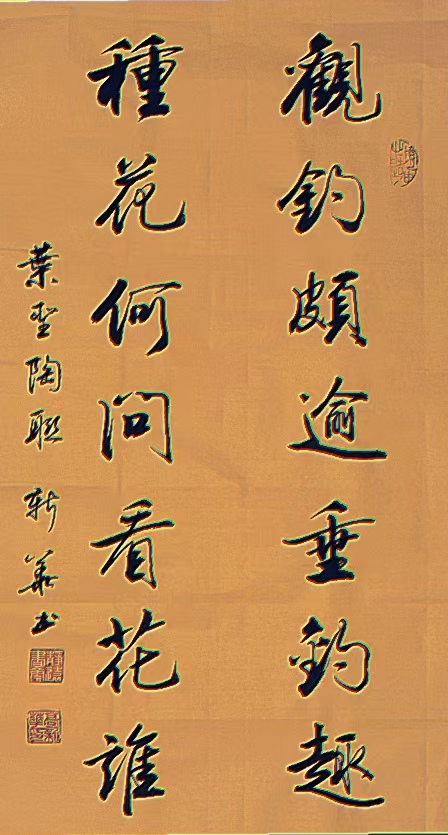 觀釣頗逾垂釣趣
種花何問看花誰
葉聖陶聯 新華書